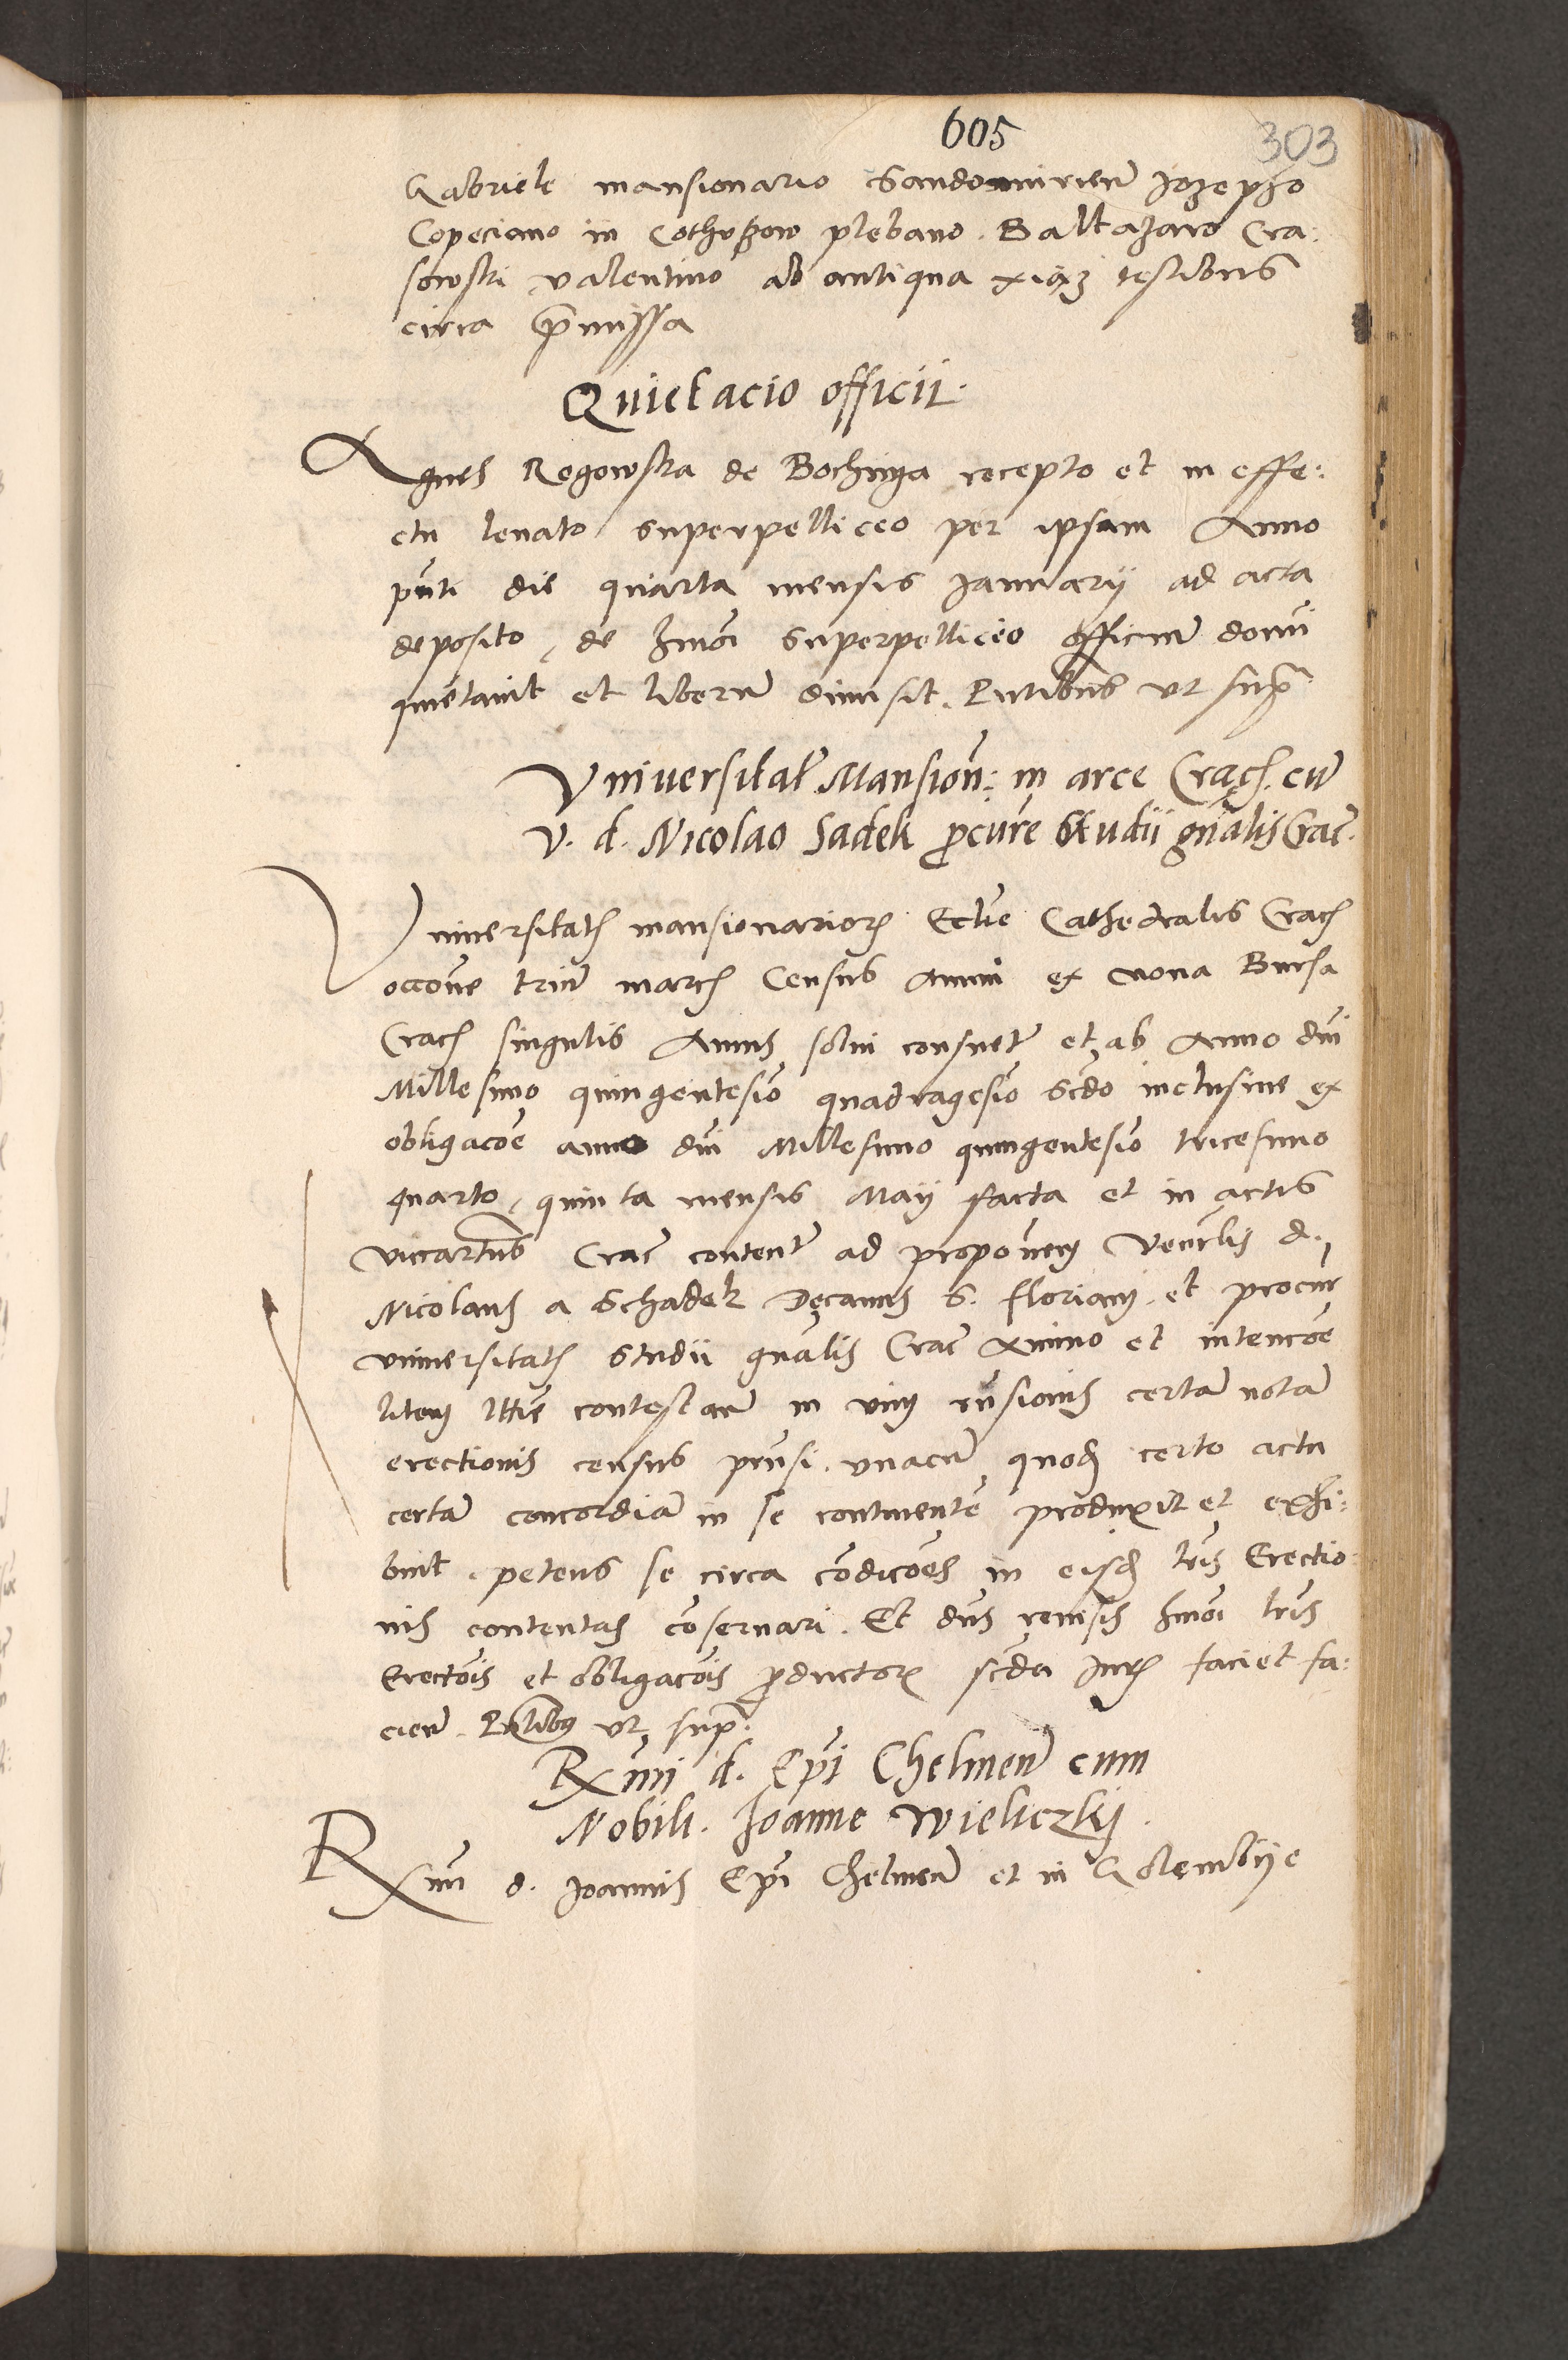 605
303
Gabriele mansionario Sandomirien Jozepho
Copeciano in Cothuszow plebano. Baltazaro Cra:
sowski valentino ab antiqua testibus
circa p̄missa
Quietacio officii.
Agnes Rogowska de Bochnya recepto et in effe:
ctu levato superpelliceo per ipsam Anno
pn̄ti die quarta mensis Januarij ad acta
deposito, de hm̄oi superpelliceo officiū domī
quietavit et liberū dimisit. Pn̄tibus ut supra
Vniversitat̄ Mansion̄: in arce Crac. cū
V. d. Nicolao Sadek p̄curē Studii gn̄alis Crac̄.
Vniversitatis mansionarior ecclīe Cathedralis Crac
occōne triū marc Census Annui ex nova Bursa
Crac singulis Annis solvi consuet̄ et ab Anno dnī
Millesimo quingentesiō quadragesiō scdo inclusive ex
obligacōe anno dnī Millesimo quingentesiō tricesimo
quarto, quinta mensis Maij facta et in actis
vicariatus Crac̄ content̄ ad proponen Venerlis d.
Nicolaus a Schadek Decanus S. floriani et procur̄
vniversitatis Studii gn̄alis Crac̄ Animo et intencōe
litem contestan̄ in vim certā notā
erectionis census pn̄si. vnacū quod certo actu
certā concordiā in se continentē produxit et exhi:
buit. petens se circa cōdicōes in eisd lris Erectio:
nis contentas cōservari. Et dn̄s visis hm̄oi lris
Erectōis et obligacōis p̄ductor scd̄a faciet fa:
ciend̄. Pn̄tibus ut supr̄.
Rx̄mi d. Ep̄i Chelmen̄ cum
Nobili. Joanne Wieliczkij.
Rx̄mi d. Joannis Ep̄i Chelmen̄ et in Golembije